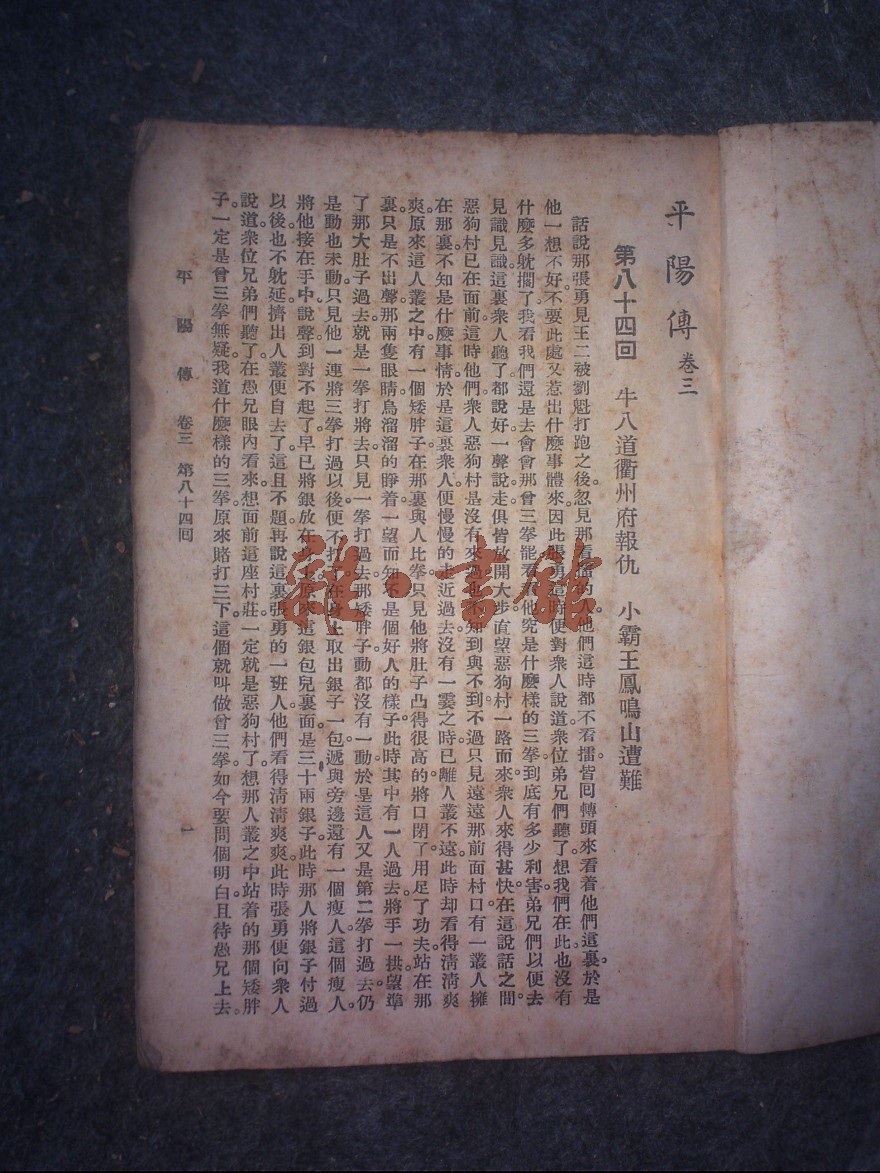 平陽傳 卷三
第八十四回 牛八道衢州府報仇 小霸王鳳鳴山遭難
話說那張勇見王二被劉魁打跑之後。忽見那看擂的人。他們這時都不看擂。皆回轉頭來看着他們這裏。於是
他一想不好。不要此處又惹出什麼事體來。因此張勇這時便對衆人說道。衆位弟兄們聽了。想我們在此也沒有
什麼多躭擱了。我看我們還是去會會那曾三拳罷。看他究是什麼樣的三拳。到底有多少利害。弟兄們以便去
見識見識。這裏衆人聽了。都說好。一聲說走。俱皆放開大步。直望惡狗村一路而來。衆人來得甚快。在這說話之間。
惡狗村已在面前。這時他們衆人惡狗村是沒有來過。也不知到與不到。不過只見遠遠那前面村口有一叢人擁
在那裏。不知是什麼事情。於是這裏衆人便慢慢的走近過去。沒有一霎之時。已離人叢不遠。此時却看得淸淸爽
爽。原來這人叢之中。有一個矮胖子。在那裏與人比拳。只見他將肚子凸得很高的。將口閉了。用足了功夫。站在那
裏。只是不出聲。那兩隻眼睛烏溜溜的睜着。一望而知不是個好人的樣子。此時其中有一人過去。將手一拱。望準
了那大肚子過去。就是一拳打將去。只見一拳打過去。那矮胖子動都沒有一動。於是這人又是第二拳打過去。仍
是動也未動。只見他一連將三拳打過以後。便不打了。在身上取出銀子一包。遞與旁邊。還有一個瘦人。這個瘦人
將他接在手中。說聲到對不起了。早已將銀放在身上。原來這銀包兒裏面。是三十兩銀子。此時那人將銀子付過
以後。也不躭延。擠出人叢。便自去了。這且不題。再說這裏張勇的一班人。他們看得淸淸爽爽。此時張勇便向衆人
說道。衆位兄弟們聽了。在愚兄眼內看來。想面前這座村莊。一定就是惡狗村了。想那人叢之中。站着的那個矮胖
子。一定是曾三拳無疑。我道什麼樣的三拳。原來賭打三下。這個就叫做曾三拳。如今要問個明白。且待愚兄上去。
平陽傳 卷三 第八十四回 一
雅·書館